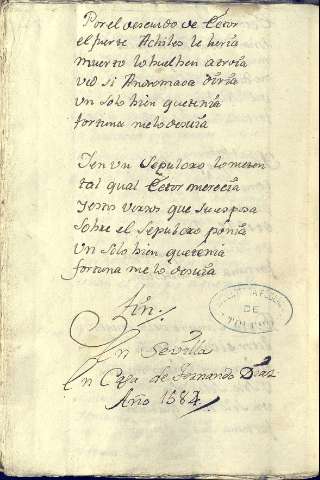 Por el descuido de Étor
el fuerte Achiles le hería
muerto lo buelben a troia
ved si Andromaca diría
Un solo bien que tenía
fortuna me lo desvía
Y en un Sepulcro lo meten
tal qual Étor merecía
Y estos versos que su esposa
Sobre el Sepulcro ponía
Un solo bien que tenia
fortuna me lo desvía
fin.
En Sevilla
En Casa de Fernando Diaz
Año 1584
DE
TOLEDO